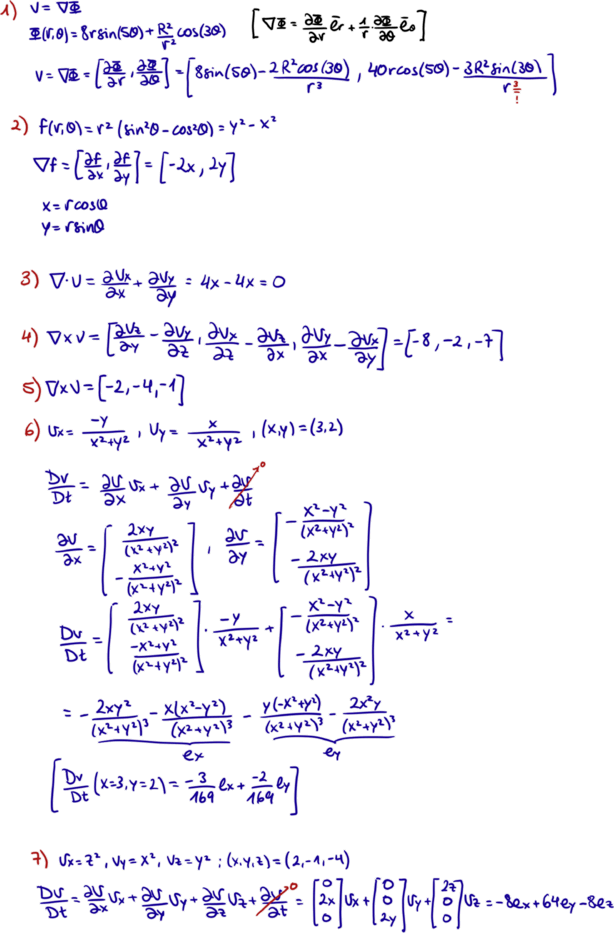 1) v = ∇Φ
Φ(r,θ) = 8rsin(5θ) + R²/r² cos(3θ) [∇Φ = ∂Φ/∂r ēr + 1/r · ∂Φ/∂θ ēθ]
v = ∇Φ = [∂Φ/∂r, ∂Φ/∂θ] = [8sin(5θ) - 2R²cos(3θ)/r³, 40rcos(5θ) - 3R²sin(3θ)/r³]
!
2) f(r,θ) = r²(sin²θ - cos²θ) = y² - x²
∇f = [∂f/∂x, ∂f/∂y] = [-2x, 2y]
x = rcosθ
y = rsinθ
3) ∇·v = ∂vx/∂x + ∂vy/∂y = 4x - 4x = 0
4) ∇×v = [∂vz/∂y - ∂vy/∂z, ∂vx/∂z - ∂vz/∂x, ∂vy/∂x - ∂vx/∂y] = [-8, -2, -7]
5) ∇×v = [-2, -4, -1]
6) vx = -y/(x²+y²), vy = x/(x²+y²), (x,y) = (3,2)
Dv/Dt = ∂v/∂x vx + ∂v/∂y vy + ∂v/∂t →0
∂v/∂x = [2xy/(x²+y²)², -x²+y²/(x²+y²)²], ∂v/∂y = [-x²-y²/(x²+y²)², -2xy/(x²+y²)²]
Dv/Dt = [2xy/(x²+y²)², -x²+y²/(x²+y²)²] · -y/(x²+y²) + [-x²-y²/(x²+y²)², -2xy/(x²+y²)²] · x/(x²+y²) =
= -2xy²/(x²+y²)³ - x(x²-y²)/(x²+y²)³ - y(-x²+y²)/(x²+y²)³ - 2x²y/(x²+y²)³
ex ey
[Dv/Dt (x=3,y=2) = -3/169 ex + -2/169 ey]
7) vx = z², vy = x², vz = y² ; (x,y,z) = (2,-1,-4)
Dv/Dt = ∂v/∂x vx + ∂v/∂y vy + ∂v/∂z vz + ∂v/∂t →0 = [0, 2x, 0] vx + [0, 0, 2y] vy + [2z, 0, 0] vz = -8ex + 64ey - 8ez